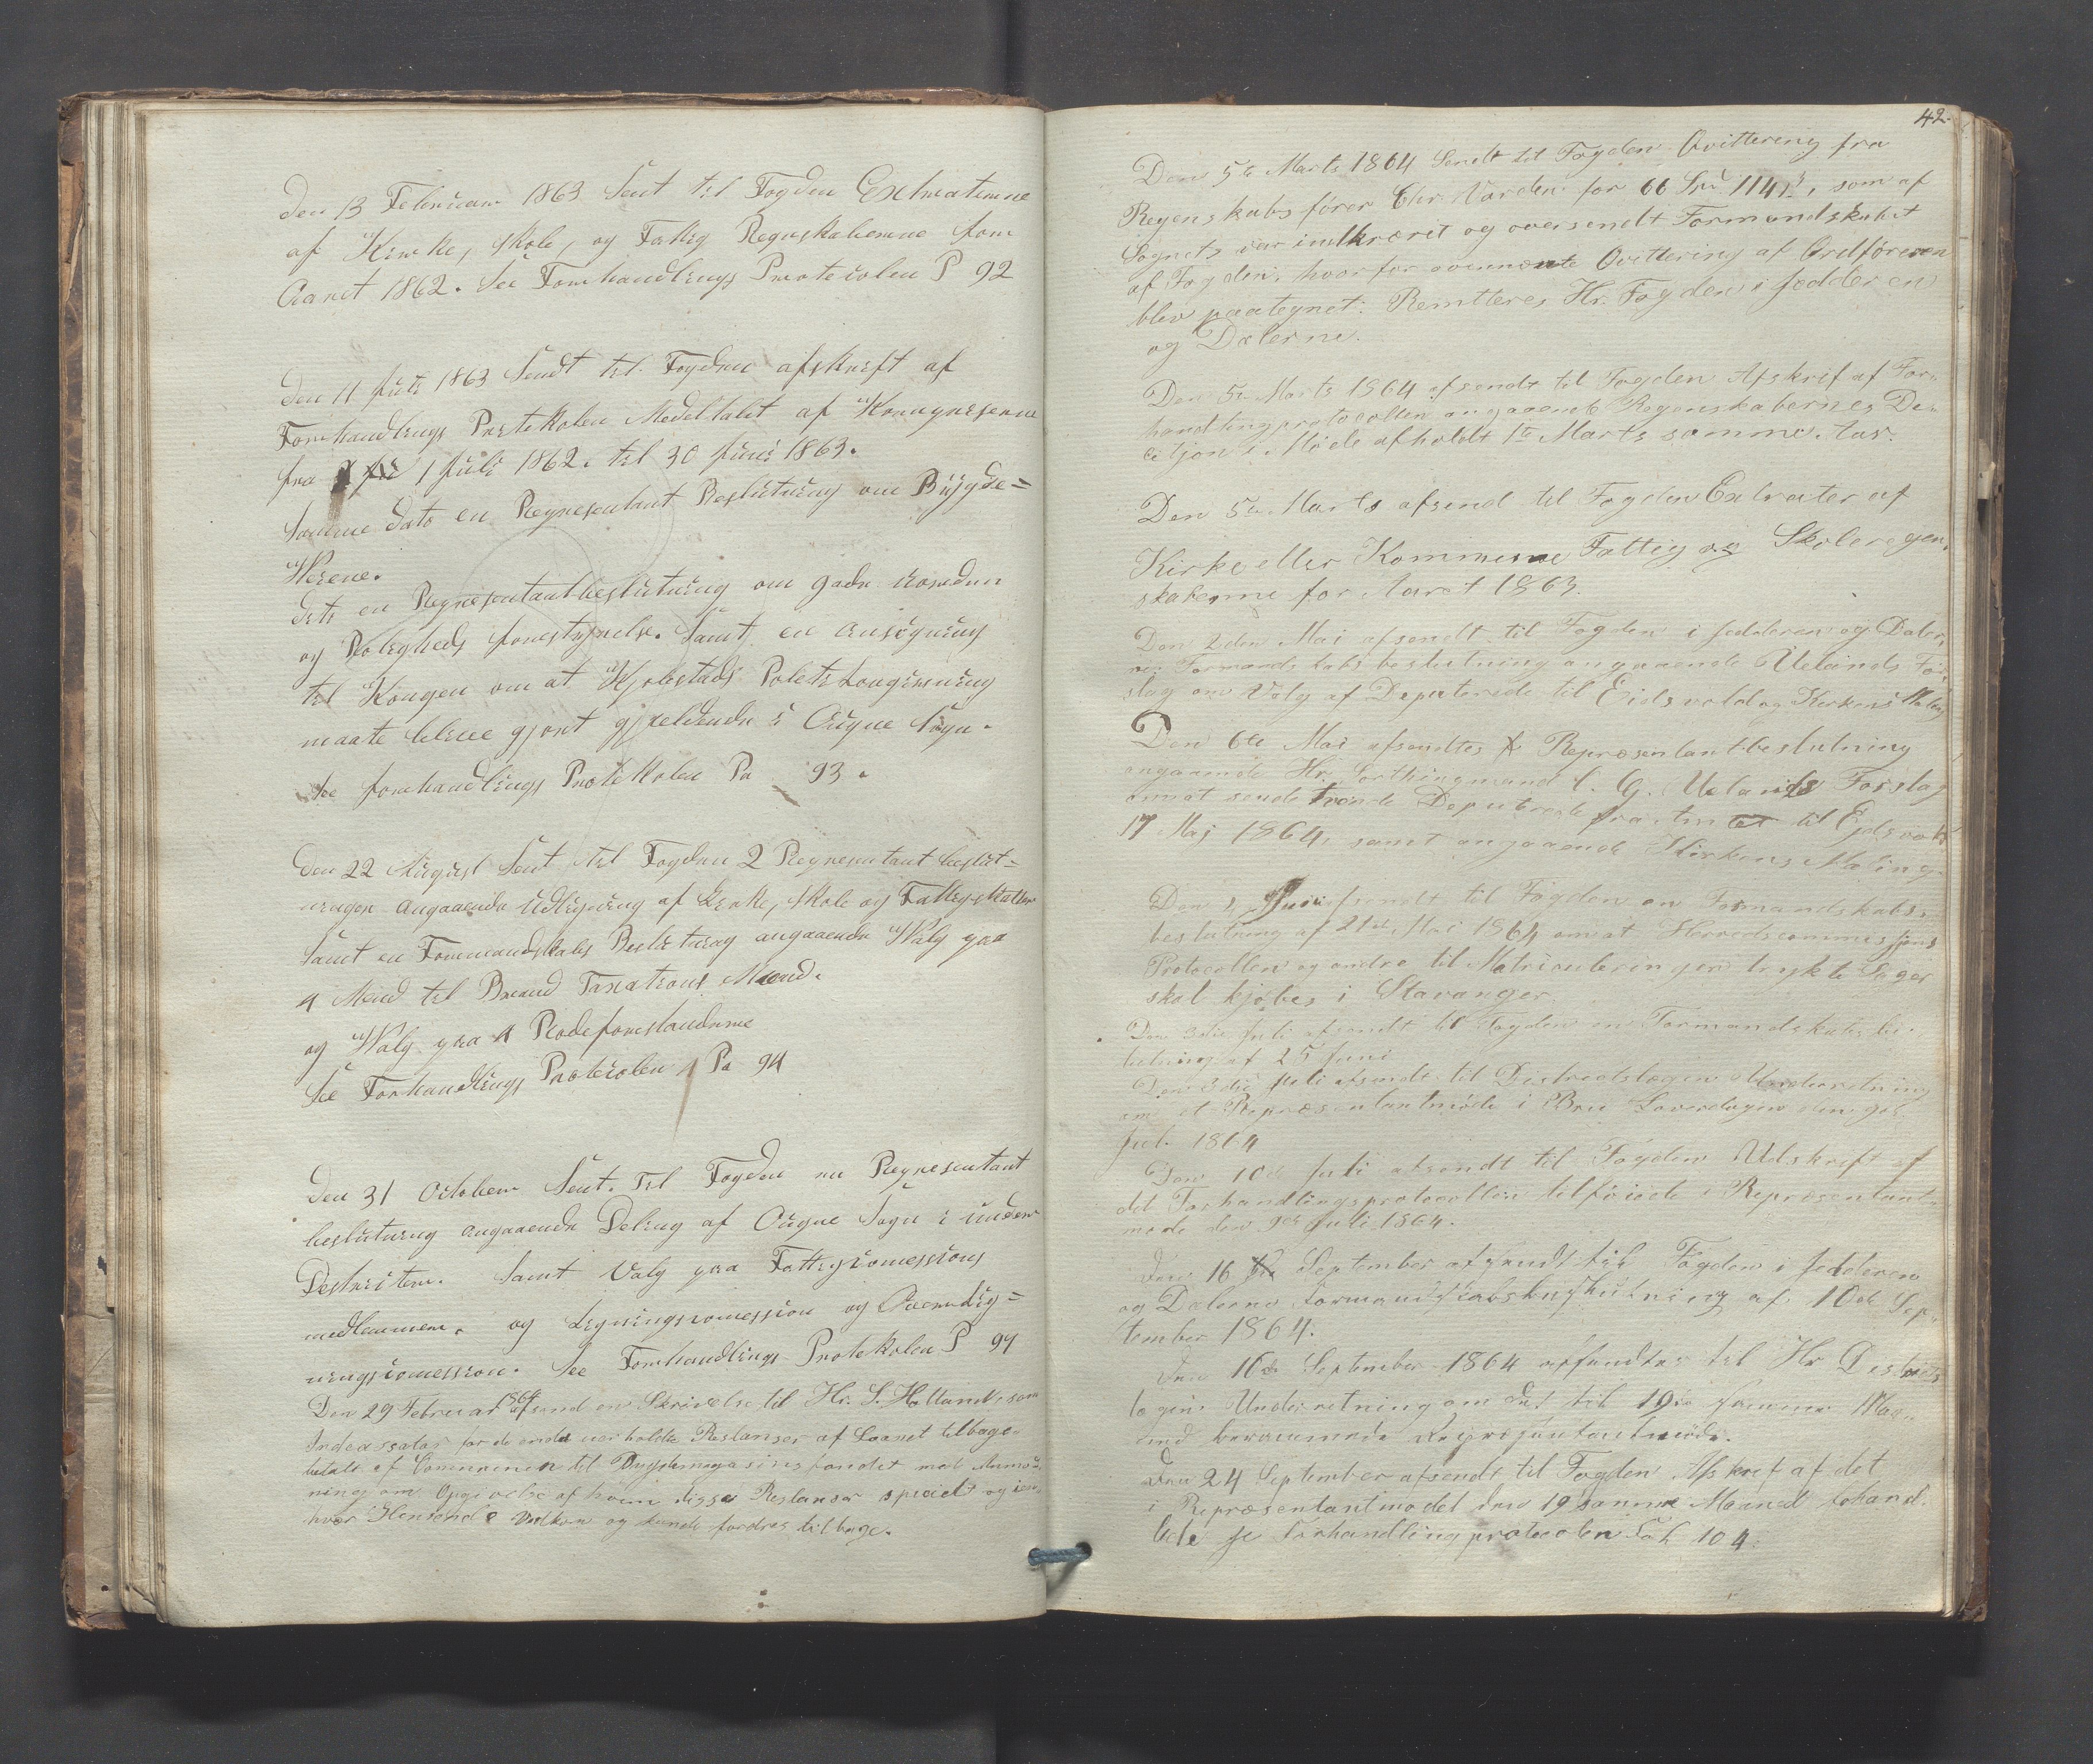 Den 13 Februar 1863 Sent til Fogden Extraterne
af Kirke, Skole, og Fattig Regnskaberne for
Aaret 1862. See Forhandlings Protecolen P 92
Den 11 Juli 1863 Sendt til Fogden afskrift af
Forhandlings Protekolen
fra 1 Juli 1862. til 30 Juni 1863.
Samme dato en Represontant Beslutning om Bygde=
Wesene.
dito en Represontantbeslutning om
og Rolegheds forestyrelse. Samt en ansögning
til Kongen om at Kjobstads Politi
maate blive gjort gjældende i Ougne Sogn.
See forhandlings Protekolen Pa 93.
Den 22 August Sent til Fogden 2 Represontant beslut=
ninger angaaende Udligning af Kirke, Skole og Fattigskatter
Samt en Formandskabs Beslutning angaaende Walg paa
4 Mend til Brand Taxations Mænd.
og Walg paa 4 Rodeforstanderne
See Forhandlings Protecolen Pa 94
Den 31 October Sent. Til Fogden en Represontant
beslutning angaaende Deling af Ougne Sogn i under
Destricter. Samt Valg paa Fattigcomessions
medlemmer. og Ligningscomession og Overlig=
ningscomession. See Forhandlings Protekolen P 97
Den 29 Februar 1864 afsend en Skrivelse til Hr. S. Hølland, som
Indcassator for de endnu uerholdte Restanser af Laanet tilbage=
betalt af Communen til Bygdemagasinsfondet med Anmod=
ning om Opgivelse af hvem disse Restanser specielt og i en
hver Henseende og kunde fordres tilbage.
42.
Den 5te Marts 1864 Sendt til Fogden Qvittering fra
Regenskabsfører Chr. Varden for 66 Spd 114, som af
Sognets var indkrævet og oversendt Formandskabet
af Fogden, hvorfor ovennævnte Qvittering af Ordføreren
blev paategnet: Remitteres Hr. Fogden i Jedderen
og Dalerne.
Den 5te Marts 1864 afsendt til Fogden Afskrif af For=
handlingprotocollen angaaende Regenskabernes De=
citjon i Møde afholdt 1te Marts samme Aar.
Den 5te Marts afsend til Fogden Extrater af
Kirke eller Kommune Fattig og Skoleregen=
skaberne for Aaret 1863.
Den 2den Mai afsendt til Fogden i Jedderen og Daler=
ne Formandskabsbeslutning angaaende Uelands For=
slag om Valg af Deputerede til Eidsvold og Kirkens Maling
Den 6te Mai afsendtes Repræsentantbeslutning
angaaende Hr. Storthingmand O. G. Uelands Forslag
om at sende Deputerede fra Amtet til Ejdsvold
17 Mai 1864, samt angaaende Kirkens Maling.
Den 1 Juni afsendt til Fogden en Formandskabs=
beslutning af 21de Mai 1864 om at Herredscommissjons
Protocollen og andre til Matriculeringen trykte Sager
skal kjøbes i Stavanger.
Den 3die Juli afsendt til Fogden en Formandskabsbe=
slutning af 25 Juni
Den 3die Juli afsendt til Distrectslægen Underretning
om et Repræsentantmøde i Bru Løverdagen den 9de
Juli 1864
Den 10de Juli afsendt til Fogden Udskrift af
det Forhandlingsprotocollen tilføiede i Repræsentant=
møde den 9de Juli 1864.
Den 16 September afsendt til Fogden i Jedderen
og Dalerne Formandskabsbeslutning af 10de Sep=
tember 1864.
Den 16de September 1864 afsendtes til Hr Distrikts
lægen Underretning om det til 19de samme Maa=
ned berammede Represontantmøde.
Den 24 September afsendt til Fogden Afskref af det
i Repræsentantmødet den 19 samme Maaned behand=
lede se Forhandlingprotocolen Fol. 104.